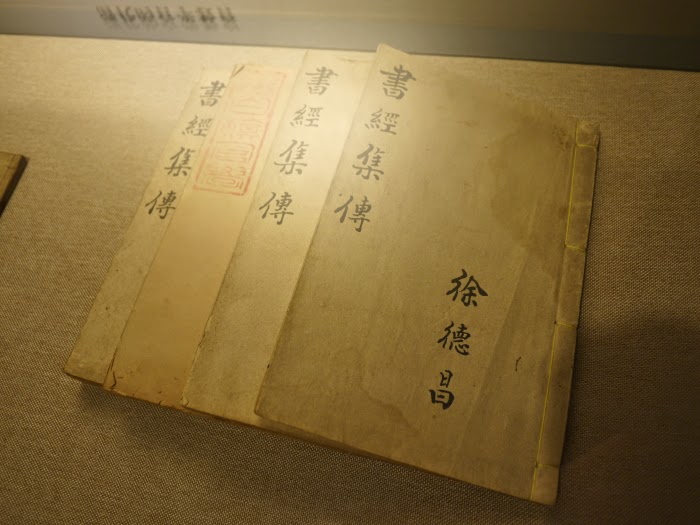 書經集傳
書經集傳
書經集傳
徐德昌